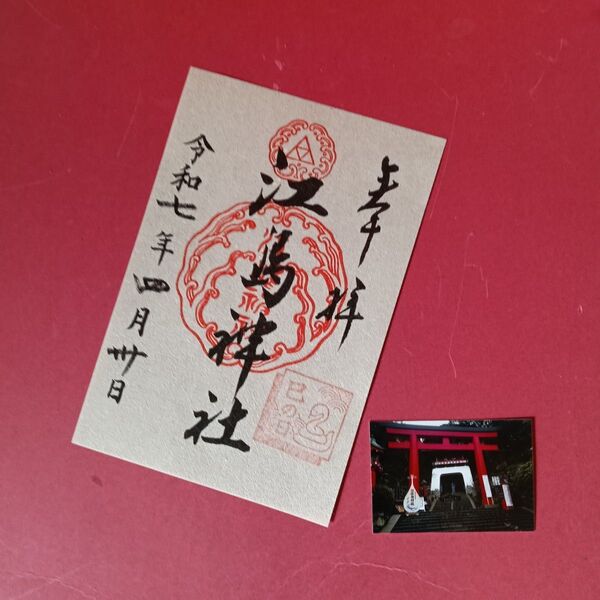 奉拝
江島神社
令和七年四月卅日
巳の日